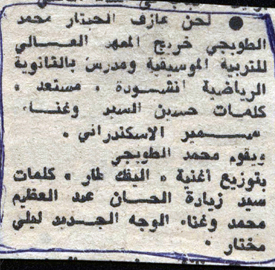 ● لحن عازف الجيتار محمد
الطوبجي خريج المعهد العالي
للتربية الموسيقية ومدرس بالثانوية
الرياضية انشودة « مستعد »
كلمات حسين السيد وغناء
سمير الاسكندراني .
ويقوم محمد الطوبجي
بتوزيع اغنية « اليفك غار » كلمات
سيد زيادة الحان عبد العظيم
محمد وغناء الوجه الجديد ليلي
مختار .